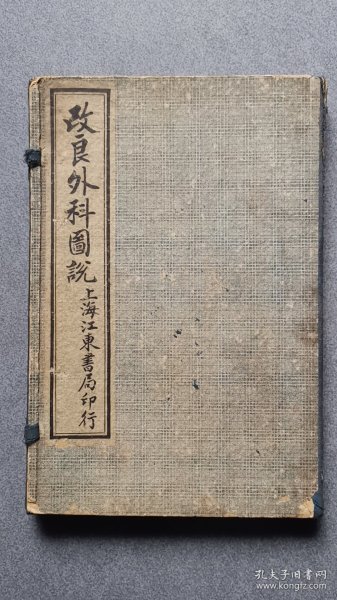 改良外科圖説
上海江東書局印行
孔夫子旧书网
www.kongfz.com